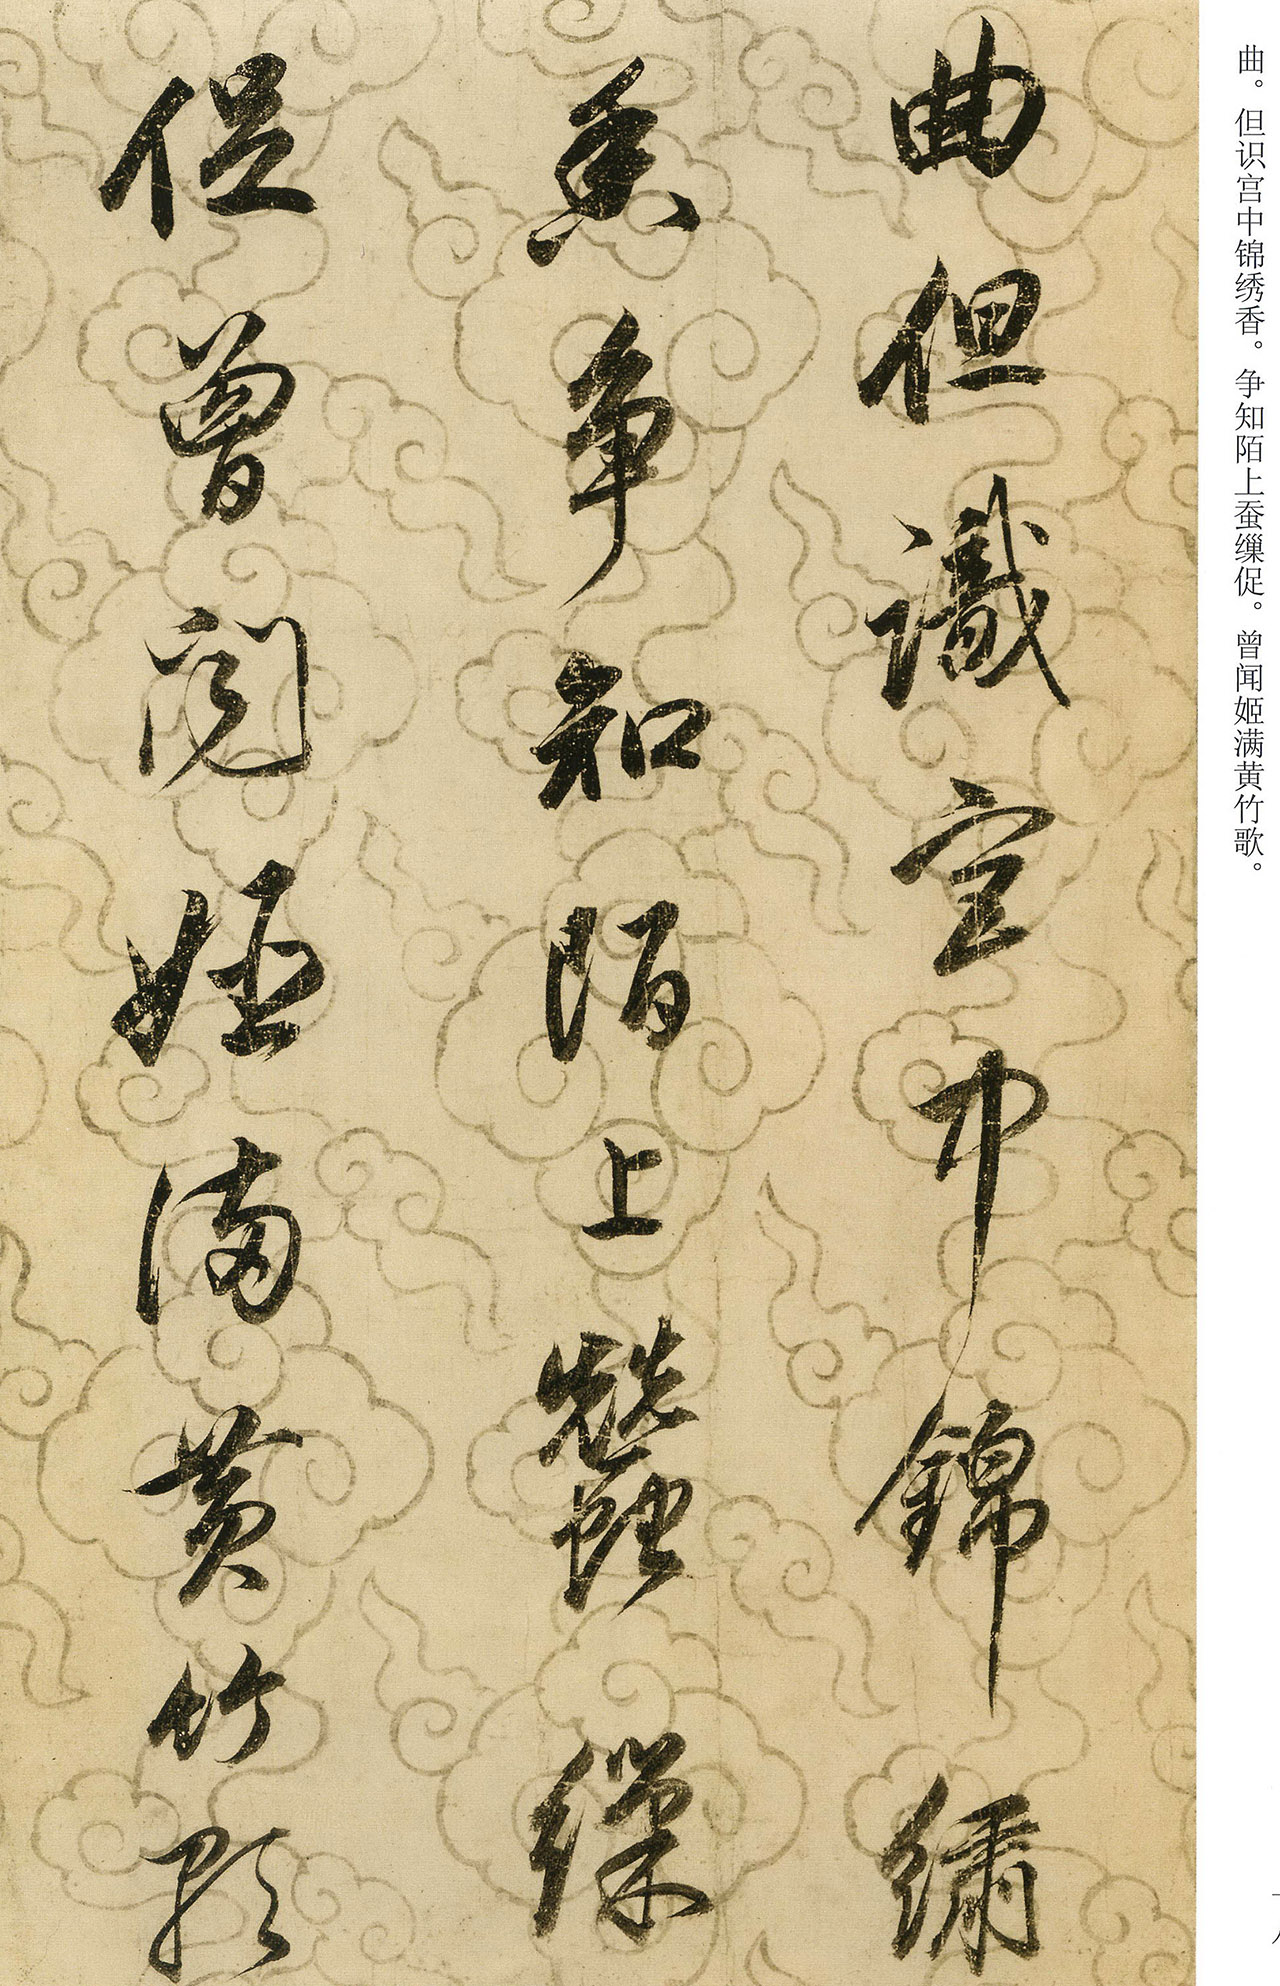 曲。但识宫中锦绣香。争知陌上蚕缫促。曾闻姬满黄竹歌。
曲但識宮中錦繡
香爭知陌上蠶繅
促曾聞姬滿黃竹歌